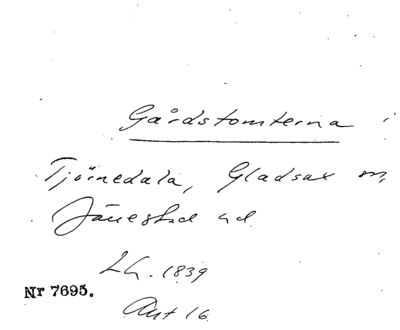 Gårdstomterna i
Tjörnedala, Gladsax sn,
Järrestad hd
Lh. 1839
Nr 7695.
Akt 16